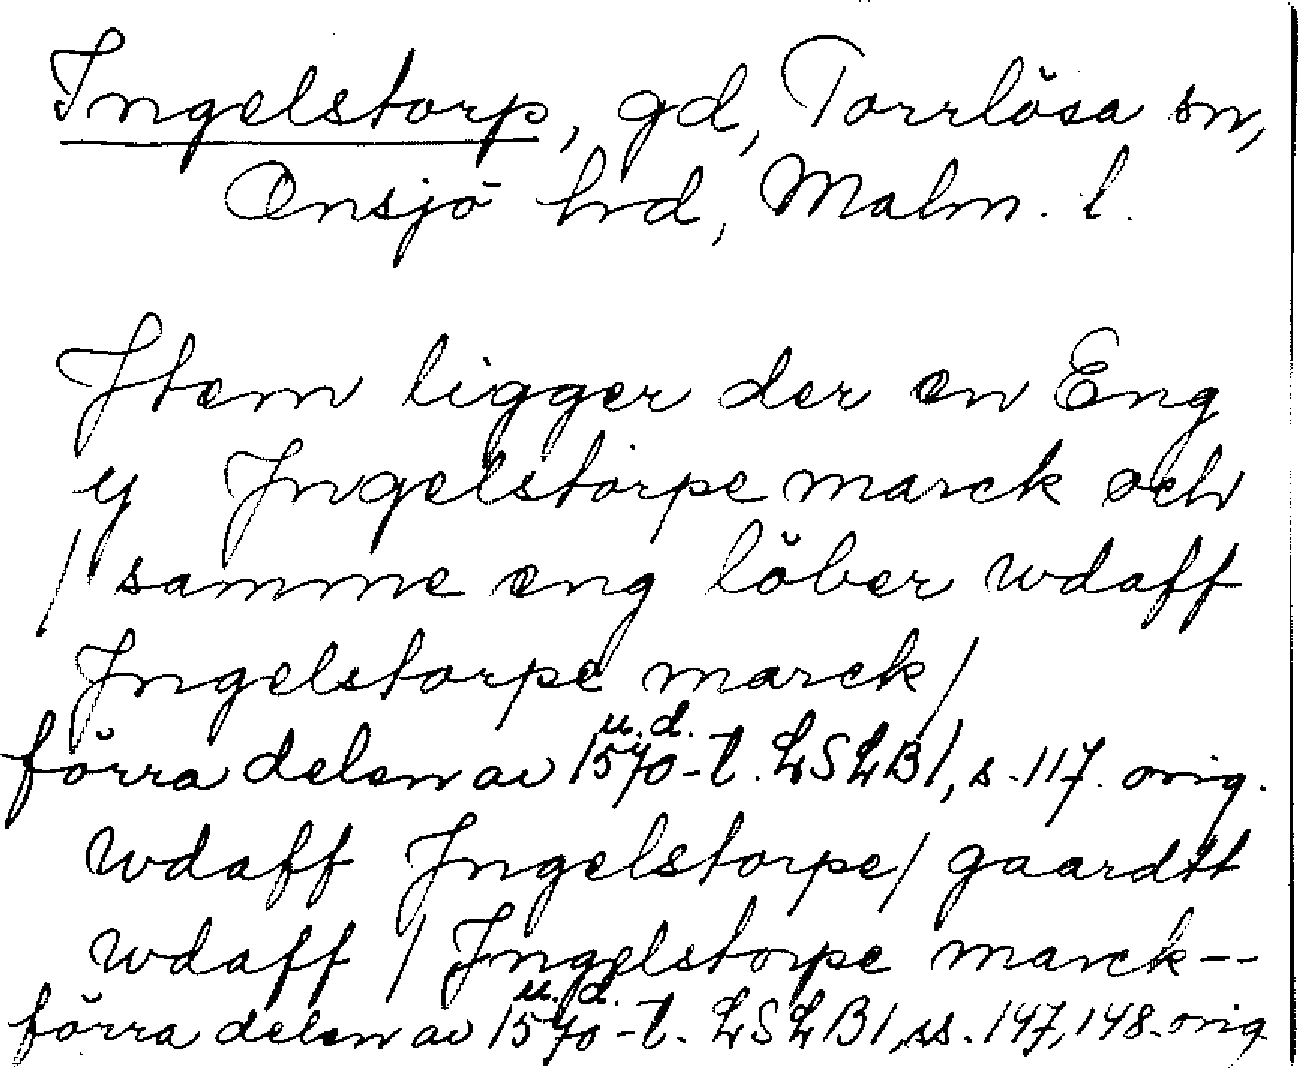 Ingelstorp, gd, Torrlösa sn,
Onsjö hrd, Malm. l.
Jtem ligger der en Eng
y Jngelstorpe marck och
/ samme eng löber wdaff
Jngelstorpe marck/
u. d.
förra delen av 1570-t. LSLB1, s. 117. orig.
wdaff Jngelstorpe/ gaardtt
wdaff / Jngelstorpe marck--
u. d.
förra delen av 1570-t. LSLB1, ss. 147, 148. orig